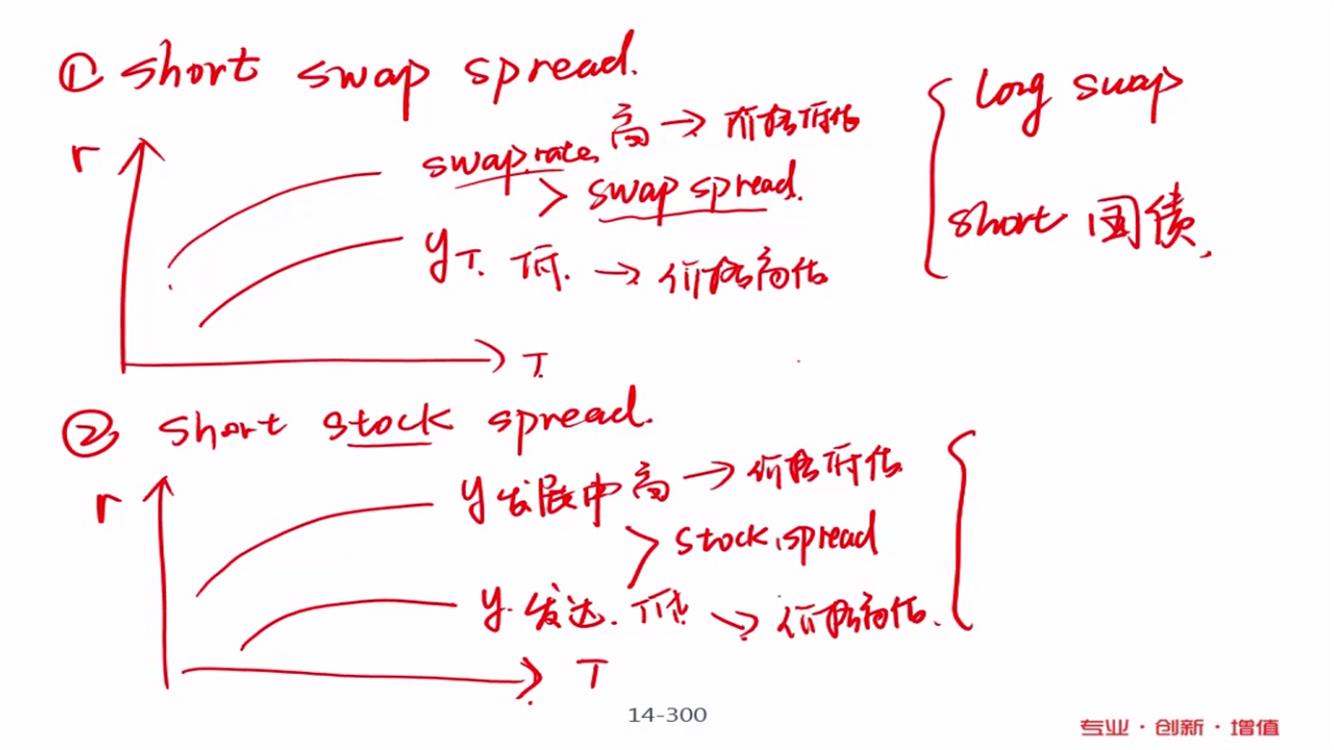 ① short swap spread.
r
swap rate 高 → 价格低估
> swap spread.
yT. 低. → 价格高估
T.
{ long swap
short 国债.
② short stock spread.
r
y 发展中 高 → 价格低估
> stock spread
y. 发达. 低. → 价格高估.
T
14-300
专业·创新·增值